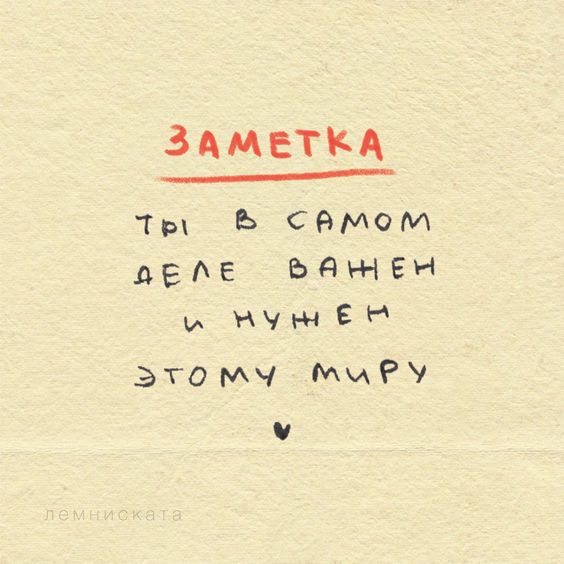 ЗАМЕТКА
ТЫ В САМОМ
ДЕЛЕ ВАЖЕН
И НУЖЕН
ЭТОМУ МИРУ
лемниската